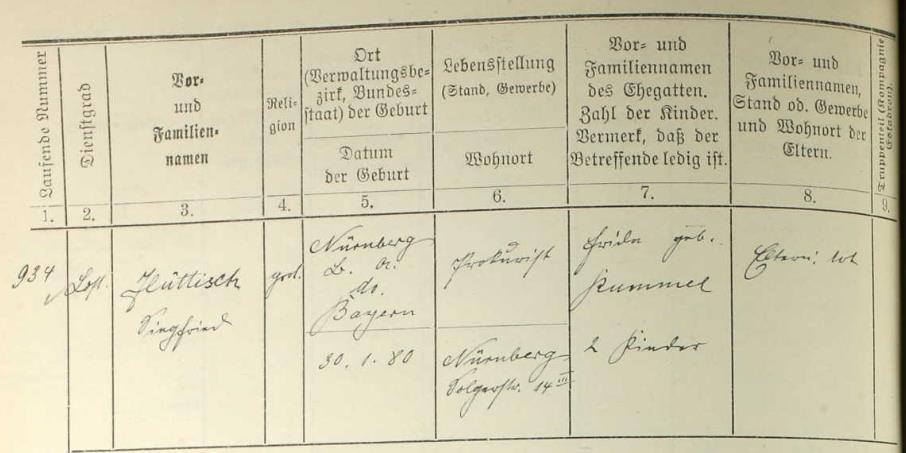 Laufende Nummer
Dienstgrad
Vor-
und
Familien-
namen
Reli-
gion
Ort
(Verwaltungsbe-
zirk, Bundes-
staat) der Geburt
Datum
der Geburt
Lebensstellung
(Stand, Gewerbe)
Wohnort
Vor- und
Familiennamen
des Ehegatten.
Zahl der Kinder.
Vermerk, daß der
Betreffende ledig ist.
Vor- und
Familiennamen,
Stand od. Gewerbe
und Wohnort der
Eltern.
Truppenteil (Kompagnie
Eskadron).
1.
2.
3.
4.
5.
6.
7.
8.
9.
934
Siegfried
Nürnberg
B. A.
do.
Bayern
30. 1. 80
Prokurist
Nürnberg
Solgerstr. 14 III
Frida geb.
Kummel
2 Kinder
Eltern: tot